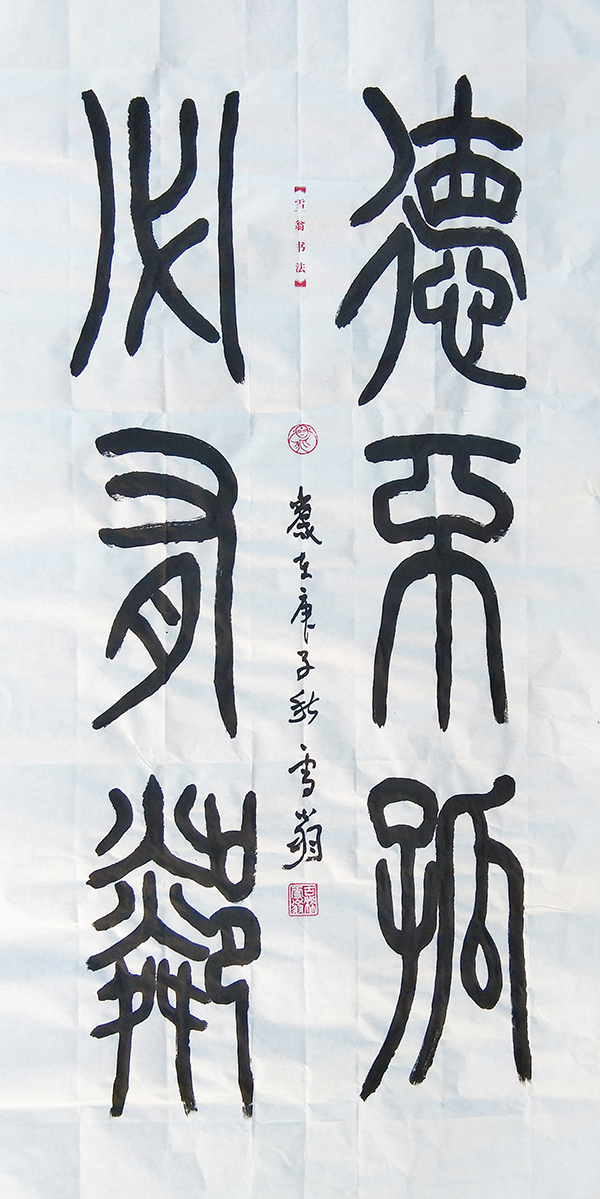 德不孤
必有鄰
歲在庚子秋雪翁
【雪翁书法】